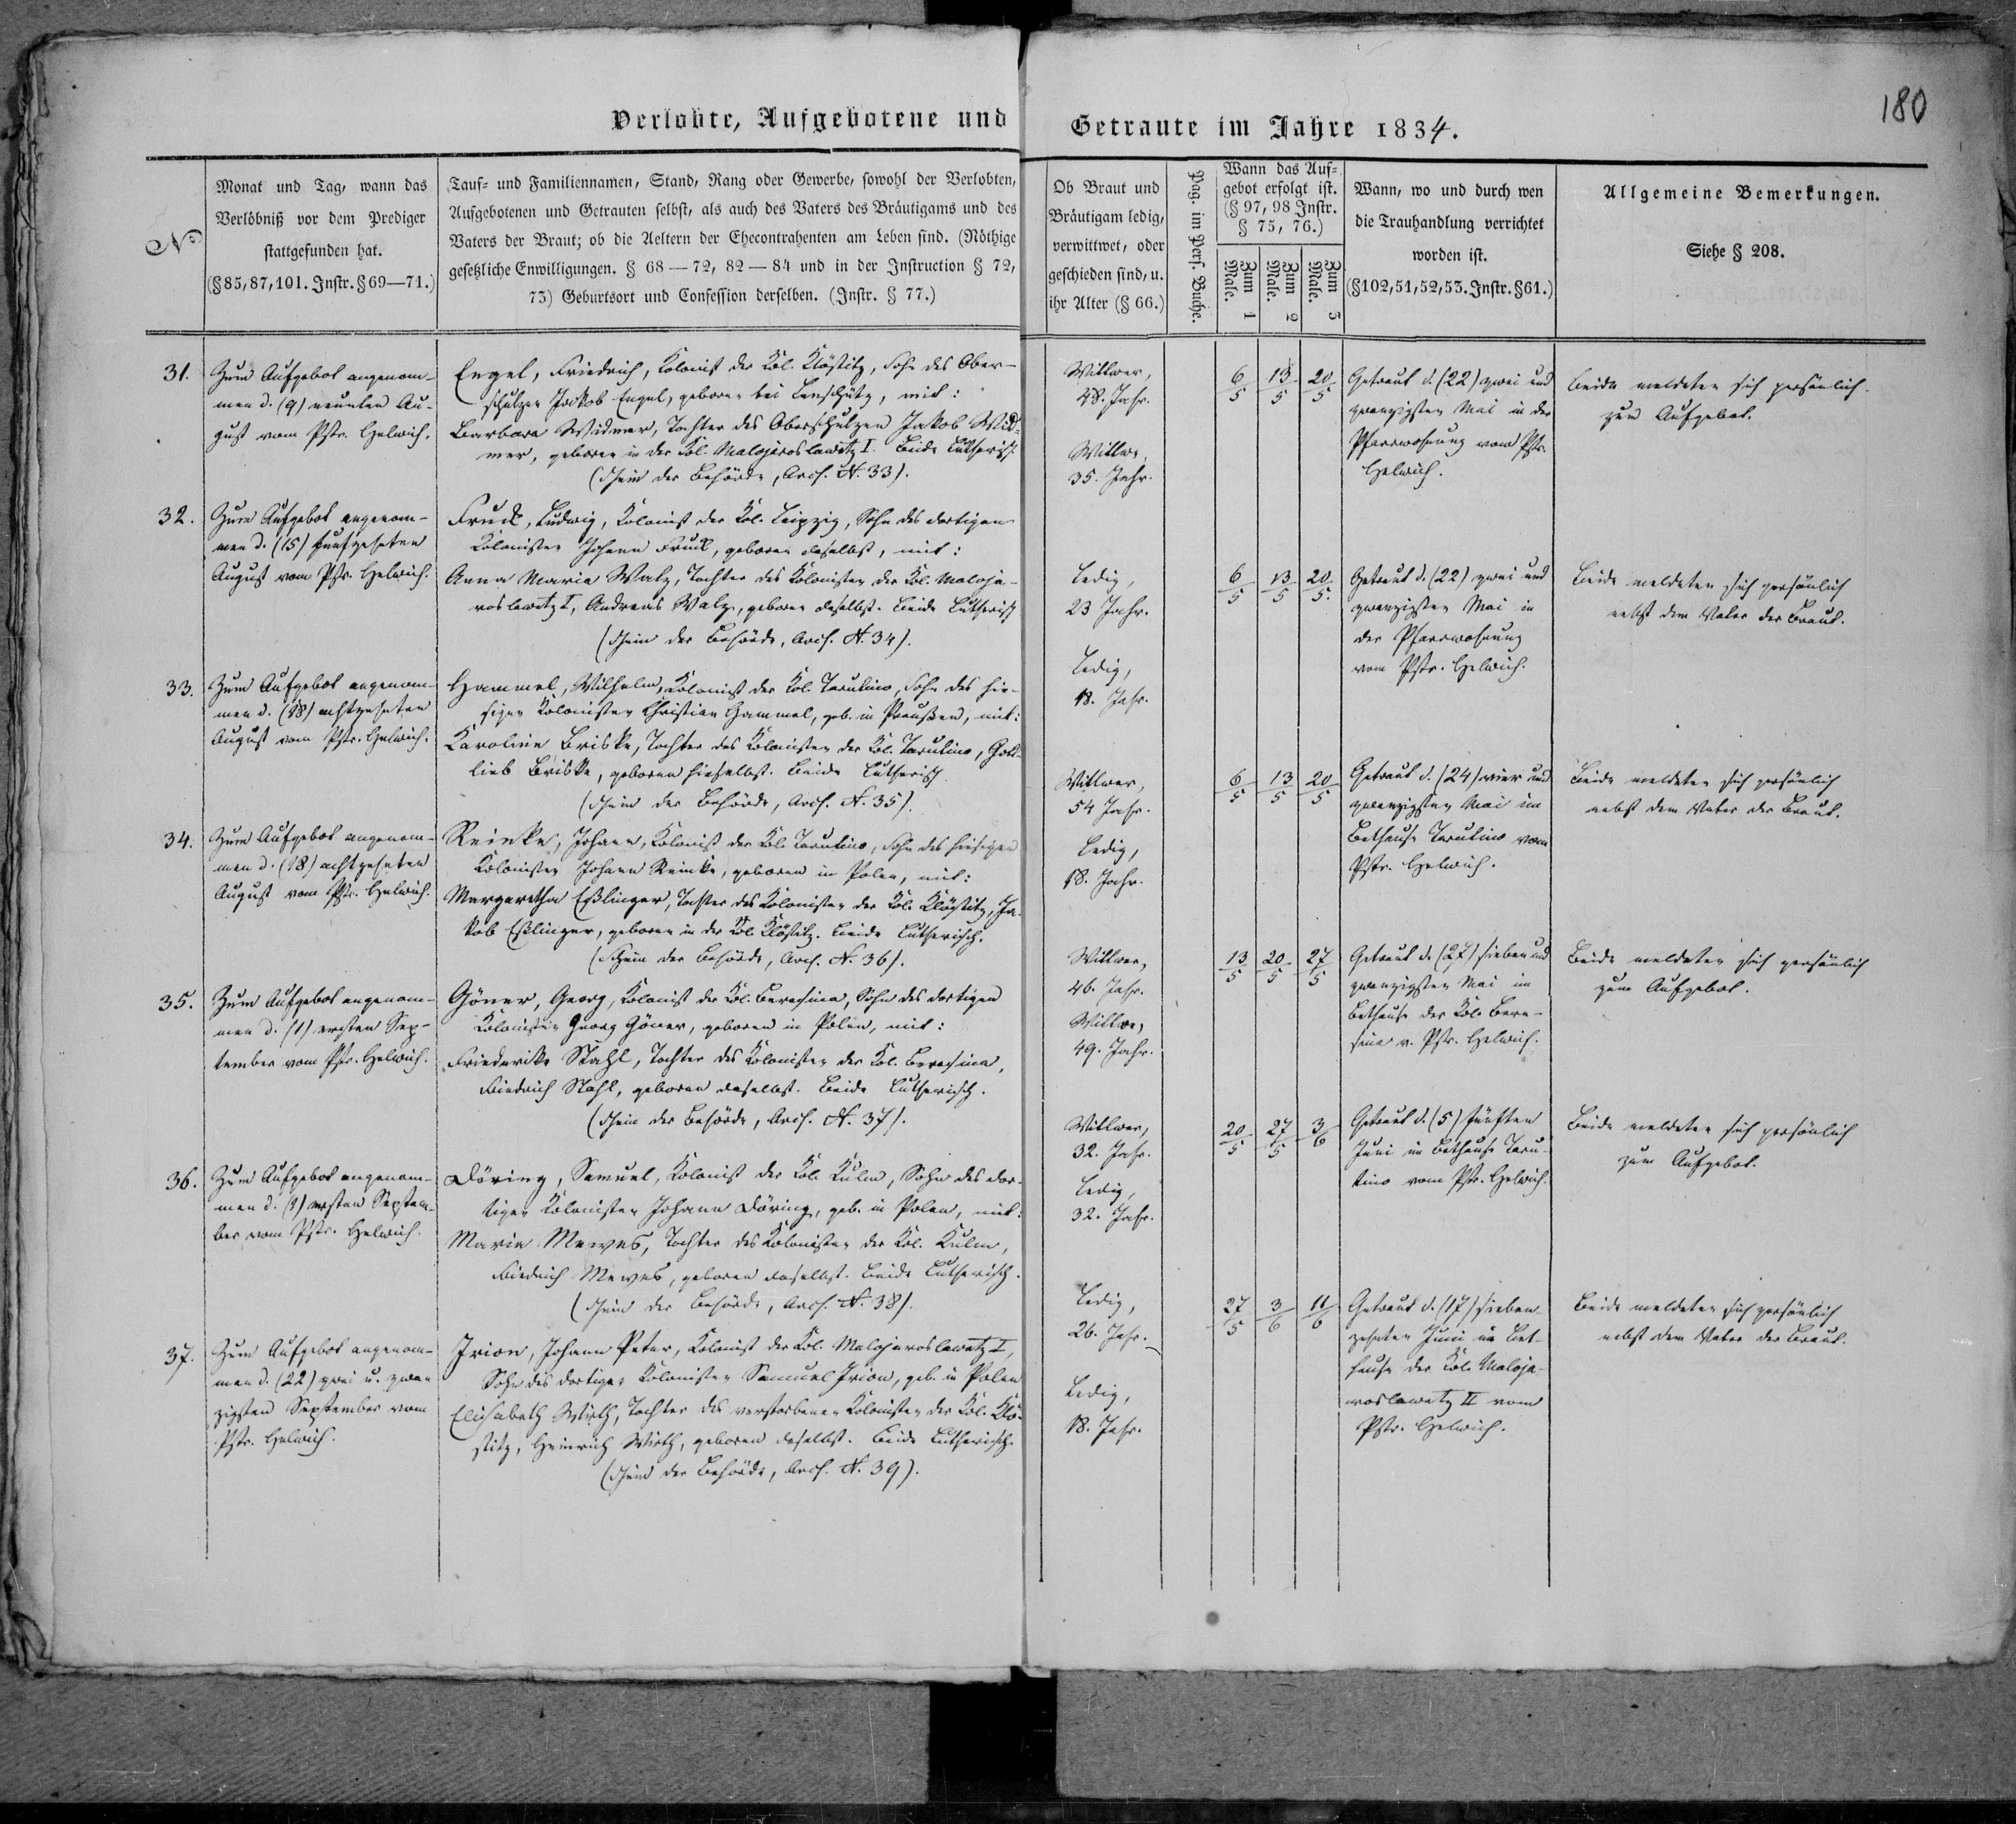 180
Verlobte, Aufgebotene und Getraute im Jahre 1834.
No
Monat und Tag, wann das
Verlöbniß vor dem Prediger
stattgefunden hat.
(§85,87,101. Instr. §69—71.)
Tauf- und Familiennamen, Stand, Rang oder Gewerbe, sowohl der Verlobten,
Aufgebotenen und Getrauten selbst, als auch des Vaters des Bräutigams und des
Vaters der Braut; ob die Aeltern der Ehecontrahenten am Leben sind. (Nöthige
gesetzliche Enwilligungen. § 68 — 72, 82 — 84 und in der Instruction § 72,
73) Geburtsort und Confession derselben. (Instr. § 77.)
Ob Braut und
Bräutigam ledig,
verwittwet, oder
geschieden sind, u.
ihr Alter (§ 66.)
Pag. im Pers. Buche.
Wann das Auf-
gebot erfolgt ist.
(§ 97, 98 Instr.
§ 75, 76.)
Zum 1 Male.
Zum 2 Male.
Zum 3 Male.
Wann, wo und durch wen
die Trauhandlung verrichtet
worden ist.
(§102,51,52,53. Instr. §61.)
Allgemeine Bemerkungen.
Siehe § 208.
31.
Zum Aufgebot angenom-
men d. (9) neunten Au-
gust vom Pstr. Helwich.
Engel, Friedrich, Kolonist der Kol. Klöstitz, Sohn des Ober-
schulzen Jackob Engel, geboren bei, mit:
Barbara Widmer, Tochter des Oberschulzen Jakob Wid-
mer, geboren in der Kol. Malojaroslawetz I. Beide Lutherisch.
(Schein der Behörde, Arch. N. 33).
Wittwer,
48. Jahr.
Wittwe,
35. Jahr.
6/5 13/5 20/5
Getraut d. (22) zwei und
zwanzigsten Mai in der
Pfarrwohnung vom Pstr.
Helwich.
Beide meldeten sich persönlich
zum Aufgebot.
32.
Zum Aufgebot angenom-
men d. (15) funfzehnten
August vom Pstr. Helwich.
Fruck, Ludwig, Kolonist der Kol. Leipzig, Sohn des dortigen
Kolonisten Johann Fruck, geboren daselbst, mit:
Anna Maria Walz, Tochter des Kolonisten der Kol. Maloja-
roslawetz I, Andreas Walz, geboren daselbst. Beide Lutherisch
(Schein der Behörde, Arch. N. 34).
Ledig,
23 Jahr.
Ledig,
18. Jahr.
6/5 13/5 20/5.
Getraut d. (22) zwei und
zwanzigsten Mai in
der Pfarrwohnung
vom Pstr. Helwich.
Beide meldeten sich persönlich
nebst dem Vater der Braut.
33.
Zum Aufgebot angenom-
men d. (18) achtzehnten
August vom Pstr. Helwich.
Hammel, Wilhelm, Kolonist der Kol. Tarutino, Sohn des hie-
sigen Kolonisten Christian Hammel, geb. in Preußen, mit:
Karoline Briske, Tochter des Kolonisten der Kol. Tarutino, Gott-
lieb Briske, geboren hieselbst. Beide Lutherisch
(Schein der Behörde, Arch. N. 35).
Wittwer,
54 Jahr.
Ledig,
18. Jahr.
6/5 13/5 20/5
Getraut d. (24) vier und
zwanzigsten Mai im
Bethause Tarutino vom
Pstr. Helwich.
Beide meldeten sich persönlich
nebst dem Vater der Braut.
34.
Zum Aufgebot angenom-
men d. (18) achtzehnten
August vom Pstr. Helwich.
Reinke, Johann, Kolonist der Kol. Tarutino, Sohn des hiesigen
Kolonisten Johann Reinke, geboren in Polen, mit:
Margaretha Eßlinger, Tochter des Kolonisten der Kol. Klöstitz, Ja-
kob Eßlinger, geboren in der Kol. Klöstitz. Beide Lutherisch.
(Schein der Behörde, Arch. N. 36).
Wittwer,
46. Jahr.
Wittwe,
49. Jahr.
13/5 20/5 27/5
Getraut d. (27) sieben und
zwanzigsten Mai im
Bethause der Kol. Bere-
sina v. Pstr. Helwich.
Beide meldeten sich persönlich
zum Aufgebot.
35.
Zum Aufgebot angenom-
men d. (1) ersten Sep-
tember vom Pstr. Helwich.
Göner, Georg, Kolonist der Kol. Beresina, Sohn des dortigen
Kolonisten Georg Göner, geboren in Polen, mit:
Friederike Stahl, Tochter des Kolonisten der Kol. Beresina,
Friedrich Stahl, geboren daselbst. Beide Lutherisch.
(Schein der Behörde, Arch. N. 37).
Wittwer,
32. Jahr.
Ledig,
32. Jahr.
20/5 27/5 3/6
Getraut d. (5) fünften
Juni im Bethause Taru-
tino vom Pstr. Helwich.
Beide meldeten sich persönlich
zum Aufgebot.
36.
Zum Aufgebot angenom-
men d. (1) ersten Septem-
ber vom Pstr. Helwich.
Döring, Samuel, Kolonist der Kol. Kulm, Sohn des dor-
tigen Kolonisten Johann Döring, geb. in Polen, mit:
Maria Mewes, Tochter des Kolonisten der Kol. Kulm,
Friedrich Mewes, geboren daselbst. Beide Lutherisch.
(Schein der Behörde, Arch. N. 38).
Ledig,
26. Jahr.
Ledig,
18. Jahr.
27/5 3/6 11/6
Getraut d. (17) sieben
zehnten Juni im Bet-
hause der Kol. Maloja-
roslawetz II vom
Pstr. Helwich.
Beide meldeten sich persönlich
nebst dem Vater der Braut.
37.
Zum Aufgebot angenom-
men d. (22) zwei u. zwan
zigsten September vom
Pstr. Helwich.
Irion, Johann Peter, Kolonist der Kol. Malojaroslawetz I,
Sohn des dortigen Kolonisten Samuel Irion, geb. in Polen
Elisabeth Wirth, Tochter des verstorbenen Kolonisten der Kol. Klö-
stitz, Heinrich Wirth, geboren daselbst. Beide Lutherisch.
(Schein der Behörde, Arch. N. 39).